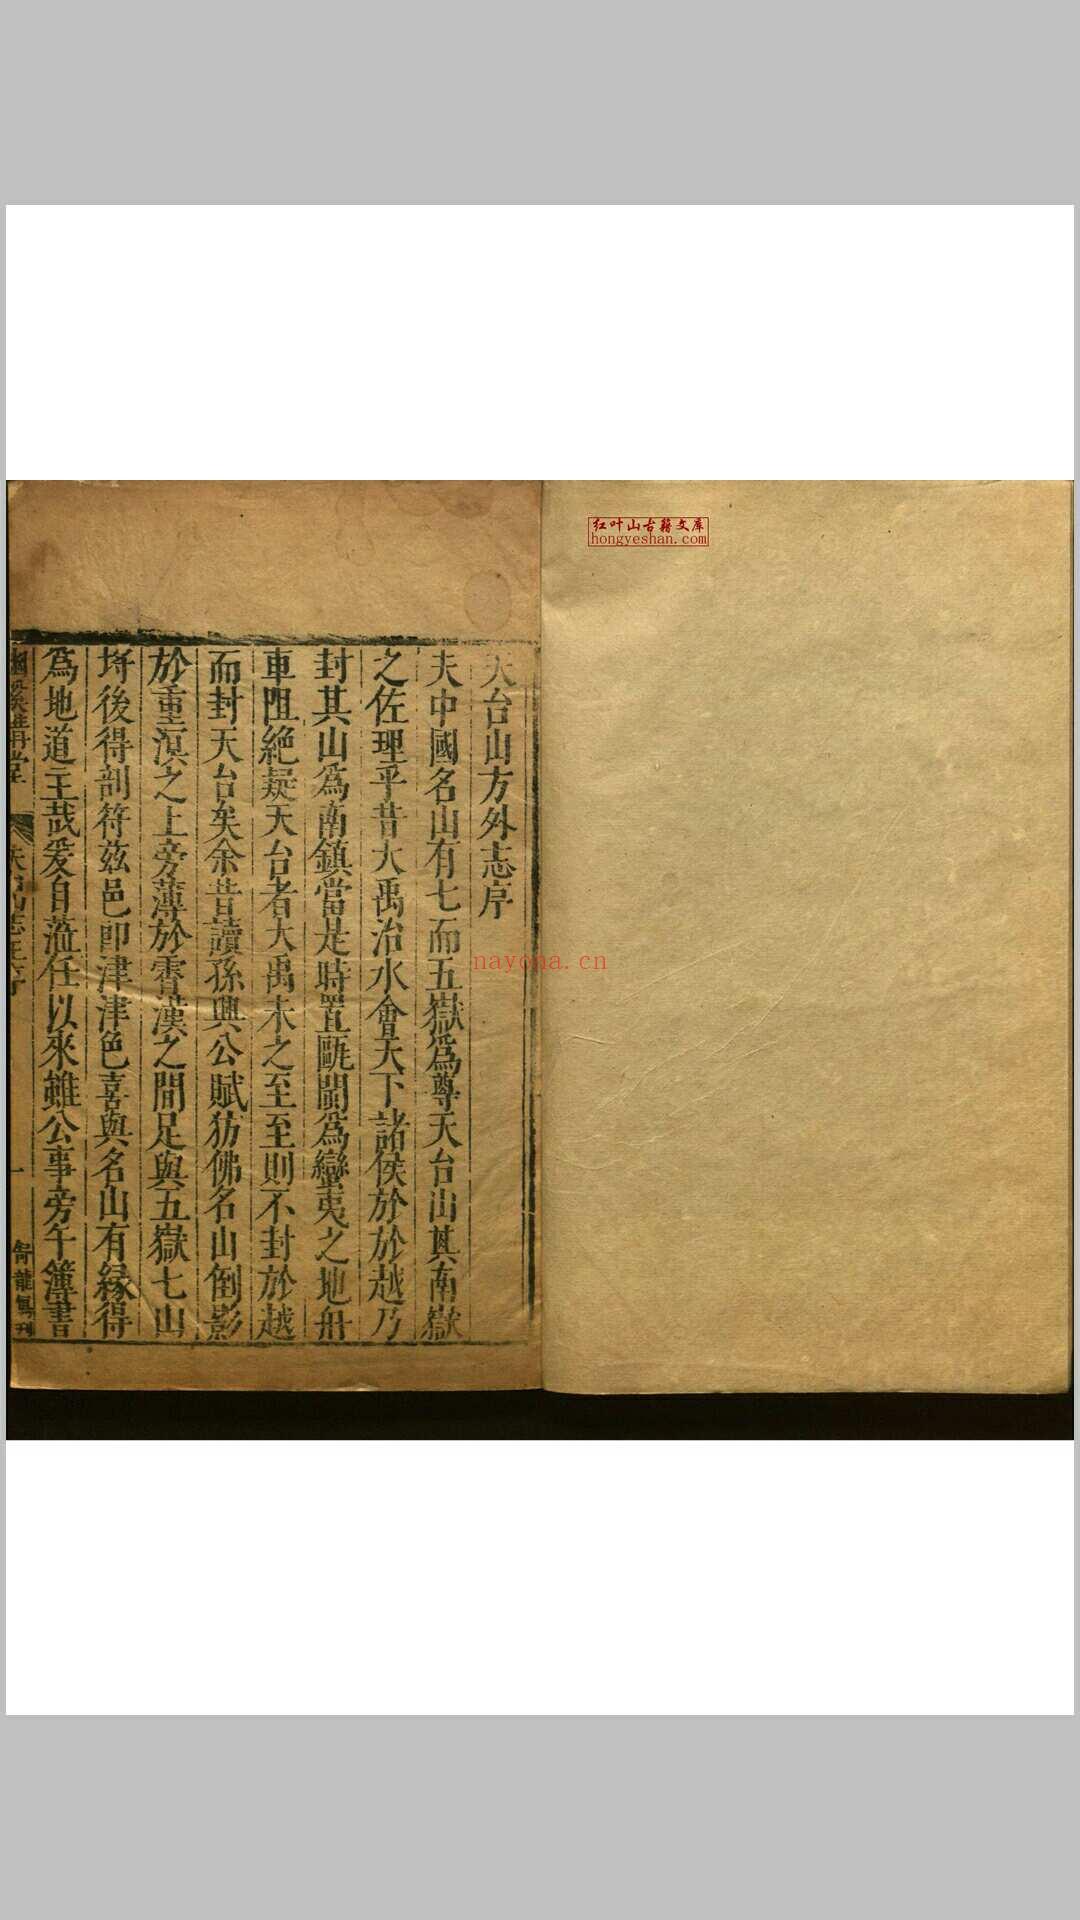 红叶山古籍文库
hongyeshan.com
nayona.cn
天台山方外志序
夫中國名山有七而五嶽爲尊天台山其南嶽
之佐理乎昔大禹治水會天下諸侯於於越乃
封其山爲南鎮當是時置甌閩爲蠻夷之地舟
車阻絶疑天台者大禹未之至至則不封於越
而封天台矣余昔讀孫興公賦彷佛名山倒影
於重溟之上旁薄於霄漢之間足與五嶽七山
埒後得剖符茲邑卽津津色喜與名山有緣得
爲地道主哉爰自蒞任以來雖公事旁午簿書
幽溪 天台山志王序 一